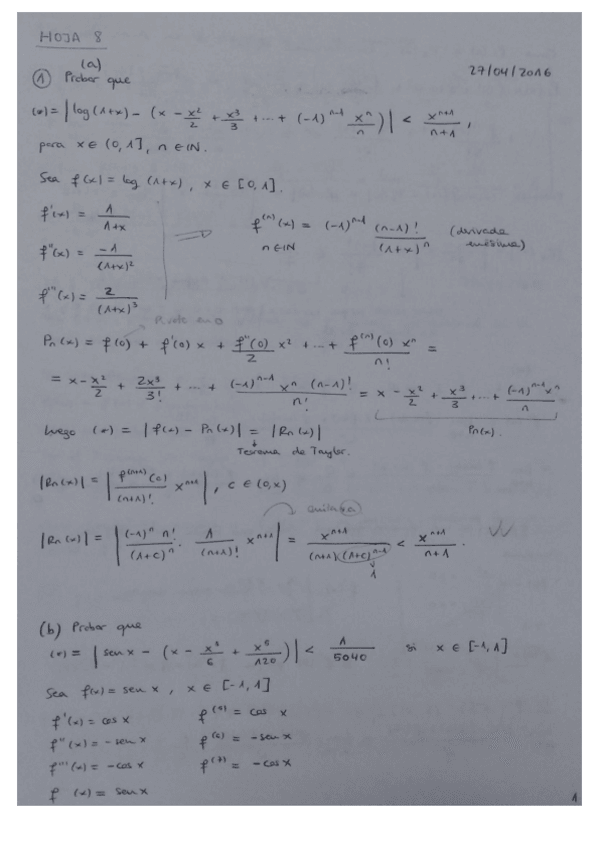 HOJA 8
(a)
27/04/2016
① Probar que
(*) = | log (1+x) - (x - x²/2 + x³/3 + ... + (-1)^(n-1) xⁿ/n) | < x^(n+1)/(n+1),
para x ∈ (0,1], n ∈ ℕ.
Sea f(x) = log (1+x), x ∈ [0,1].
f'(x) = 1/(1+x)
f''(x) = -1/(1+x)²
f'''(x) = 2/(1+x)³
f^(n)(x) = (-1)^(n-1) (n-1)!/(1+x)ⁿ (derivada
n ∈ ℕ enésima)
Pn(x) = f(0) + f'(0) x + f''(0)/2 x² + ... + f^(n)(0) xⁿ/n! =
= x - x²/2 + 2x³/3! + ... + (-1)^(n-1) xⁿ (n-1)!/n! = x - x²/2 + x³/3 ... + (-1)^(n-1) xⁿ/n
Pn(x).
Luego (*) = | f(x) - Pn(x) | = | Rn(x) |
Teorema de Taylor.
|Rn(x)| = | f^(n+1)(c)/(n+1)! x^(n+1) |, c ∈ (0,x)
|Rn(x)| = | (-1)ⁿ n!/(1+c)ⁿ · 1/(n+1)! x^(n+1) | = x^(n+1)/((n+1)(1+c)^(n+1)) < x^(n+1)/(n+1).
1
(b) Probar que
(*) = | sen x - (x - x³/6 + x⁵/120) | < 1/5040 si x ∈ [-1,1]
Sea f(x) = sen x, x ∈ [-1,1]
f'(x) = cos x f^(5) = cos x
f''(x) = -sen x f^(6) = -sen x
f'''(x) = -cos x f^(7) = -cos x
f (x) = sen x
1